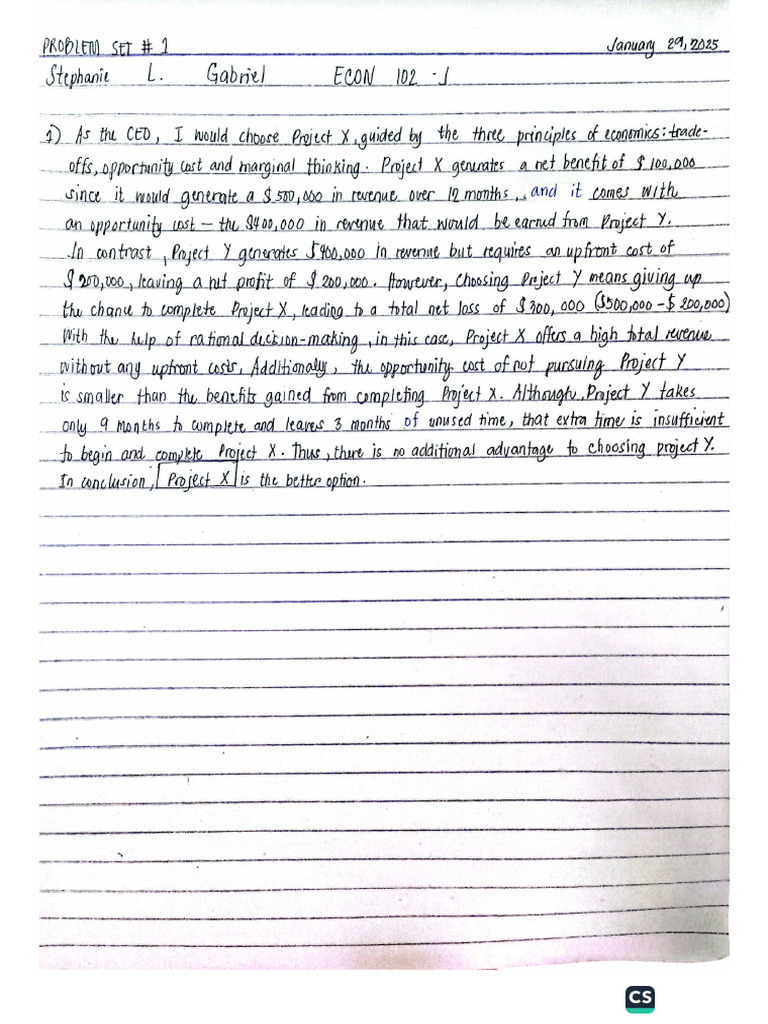 PROBLEM SET # 1 January 29, 2025
Stephanie L. Gabriel ECON 102 - J
1) As the CEO, I would choose Project X, guided by the three principles of economics: trade-
offs, opportunity cost and marginal thinking. Project X generates a net benefit of $ 100,000
since it would generate a $500,000 in revenue over 12 months, and it comes with
an opportunity cost — the $400,000 in revenue that would be earned from Project Y.
In contrast, Project Y generates $400,000 in revenue but requires an upfront cost of
$ 200,000, leaving a net profit of $ 200,000. However, choosing Project Y means giving up
the chance to complete Project X, leading to a total net loss of $ 300,000 ($500,000 - $ 200,000)
With the help of rational decision-making, in this case, Project X offers a high total revenue
without any upfront costs, Additionally, the opportunity cost of not pursuing Project Y
is smaller than the benefits gained from completing Project X. Although, Project Y takes
only 9 months to complete and leaves 3 months of unused time, that extra time is insufficient
to begin and complete Project X. Thus, there is no additional advantage to choosing project Y.
In conclusion, Project X is the better option.
CS